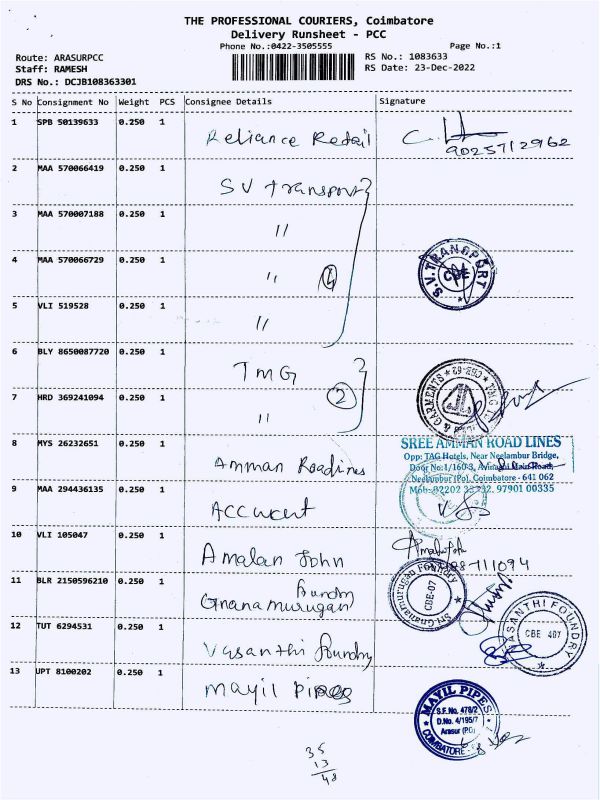 THE PROFESSIONAL COURIERS, Coimbatore
Delivery Runsheet - PCC
Phone No.:0422-3505555
Page No.:1
Route: ARASURPCC
RS No.: 1083633
Staff: RAMESH
RS Date: 23-Dec-2022
DRS No.: DCJB108363301
S No Consignment No Weight PCS Consignee Details Signature
1 SPB 50139633 0.250 1 Reliance Retail
9025712962
2 MAA 570066419 0.250 1 SV transport
3 MAA 570007188 0.250 1 "
4 MAA 570066729 0.250 1 " 4
S.V. TRANSPORT
CBE
5 VLI 519528 0.250 1 "
6 BLY 8650087720 0.250 1 TMG
7 HRD 369241094 0.250 1 " 2
8 MYS 26232651 0.250 1 Amman Roadlines
SREE AMMAN ROAD LINES
Opp: TAG Hotels, Near Neelambur Bridge,
Door No:1/160-3, Avinashi Main Road,
Neelambur (Po), Coimbatore - 641 062
97901 00335
9 MAA 294436135 0.250 1
10 VLI 105047 0.250 1 Amalan John
11 BLR 2150596210 0.250 1 Gnanamurugan foundry
Sri Gnanamurugan FOUNDRY
CBE-07
12 TUT 6294531 0.250 1 Vasanthi foundry
VASANTHI FOUNDRY
CBE 407
13 UPT 8100202 0.250 1 Mayil Pipes
MAYIL PIPES
S.F.No. 478/2
D.No. 4/195/7
Arasur (P.O)
COIMBATORE
35
13
48